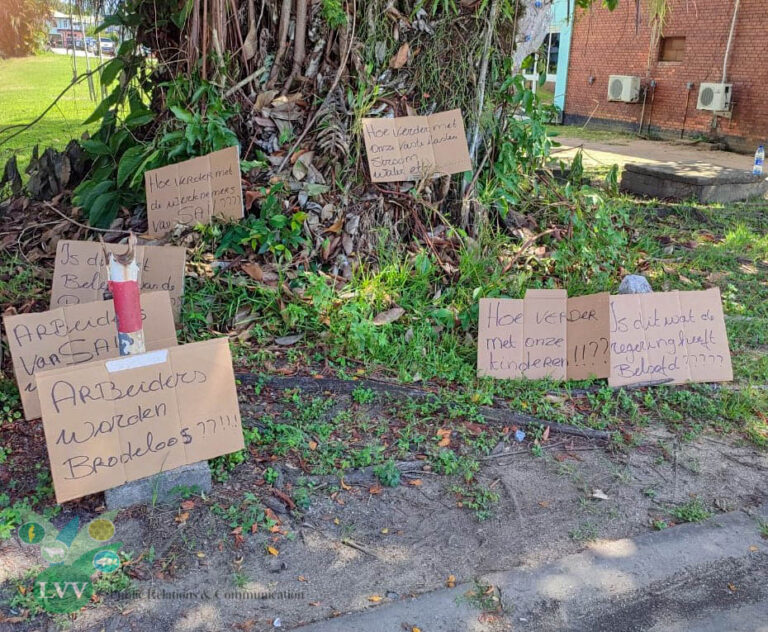 Hoe verder met
de werknemers
van SAI ????
Hoe verder met
onze vaste lasten
Stroom
Water etc
Is dit
Belei van de
ARBeiders
van SAI
ARBeiders
worden
Brodeloos ??!!!
Hoe verder
met onze
kinderen !!??
Is dit wat de
regering heeft
Beloofd ?????
LVV
Public Relations & Communication